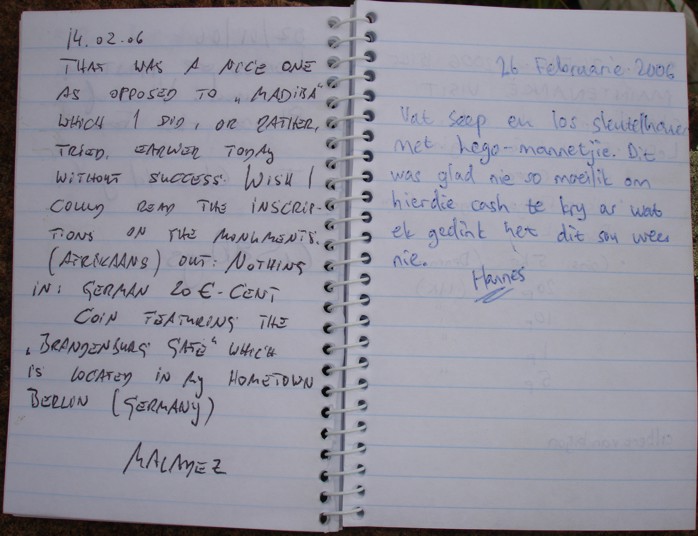 14.02.06
THAT WAS A NICE ONE
AS OPPOSED TO „MADIBA"
WHICH I DID, OR RATHER,
TRIED EARLIER TODAY
WITHOUT SUCCESS. WISH I
COULD READ THE INSCRIP-
TIONS ON THE MONUMENTS.
(AFRIKAANS) OUT: NOTHING
IN: GERMAN 20 €-CENT
COIN FEATURING THE
„BRANDENBURG GATE" WHICH
IS LOCATED IN MY HOMETOWN
BERLIN (GERMANY)
26 Februarie 2006
Vat seep en los sleutelhouer
met lego-mannetjie. Dit
was glad nie so moeilik om
hierdie cash te kry as wat
ek gedink het dit sou wees
nie.
Hannes